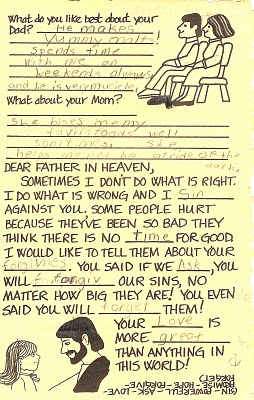 What do you like best about your
Dad? He makes
yummy malts!
Spends time
with me on
weekends always
and he is very
What about your Mom?
She
well
Somtimes, she
helps me not be afride of the
dark,
DEAR FATHER IN HEAVEN,
SOMETIMES I DON'T DO WHAT IS RIGHT.
I DO WHAT IS WRONG AND I Sin
AGAINST YOU. SOME PEOPLE HURT
BECAUSE THEY'VE BEEN SO BAD THEY
THINK THERE IS NO time FOR GOOD.
I WOULD LIKE TO TELL THEM ABOUT YOUR
forgivnes. YOU SAID IF WE Ask YOU
WILL forgiv OUR SINS, NO
MATTER HOW BIG THEY ARE! YOU EVEN
SAID YOU WILL forget THEM!
YOUR Love IS
MORE great
THAN ANYTHING IN
THIS WORLD!
SIN - POWERFULL - ASK - LOVE -
PROMISE - HOPE - FORGIVE -
FORGET